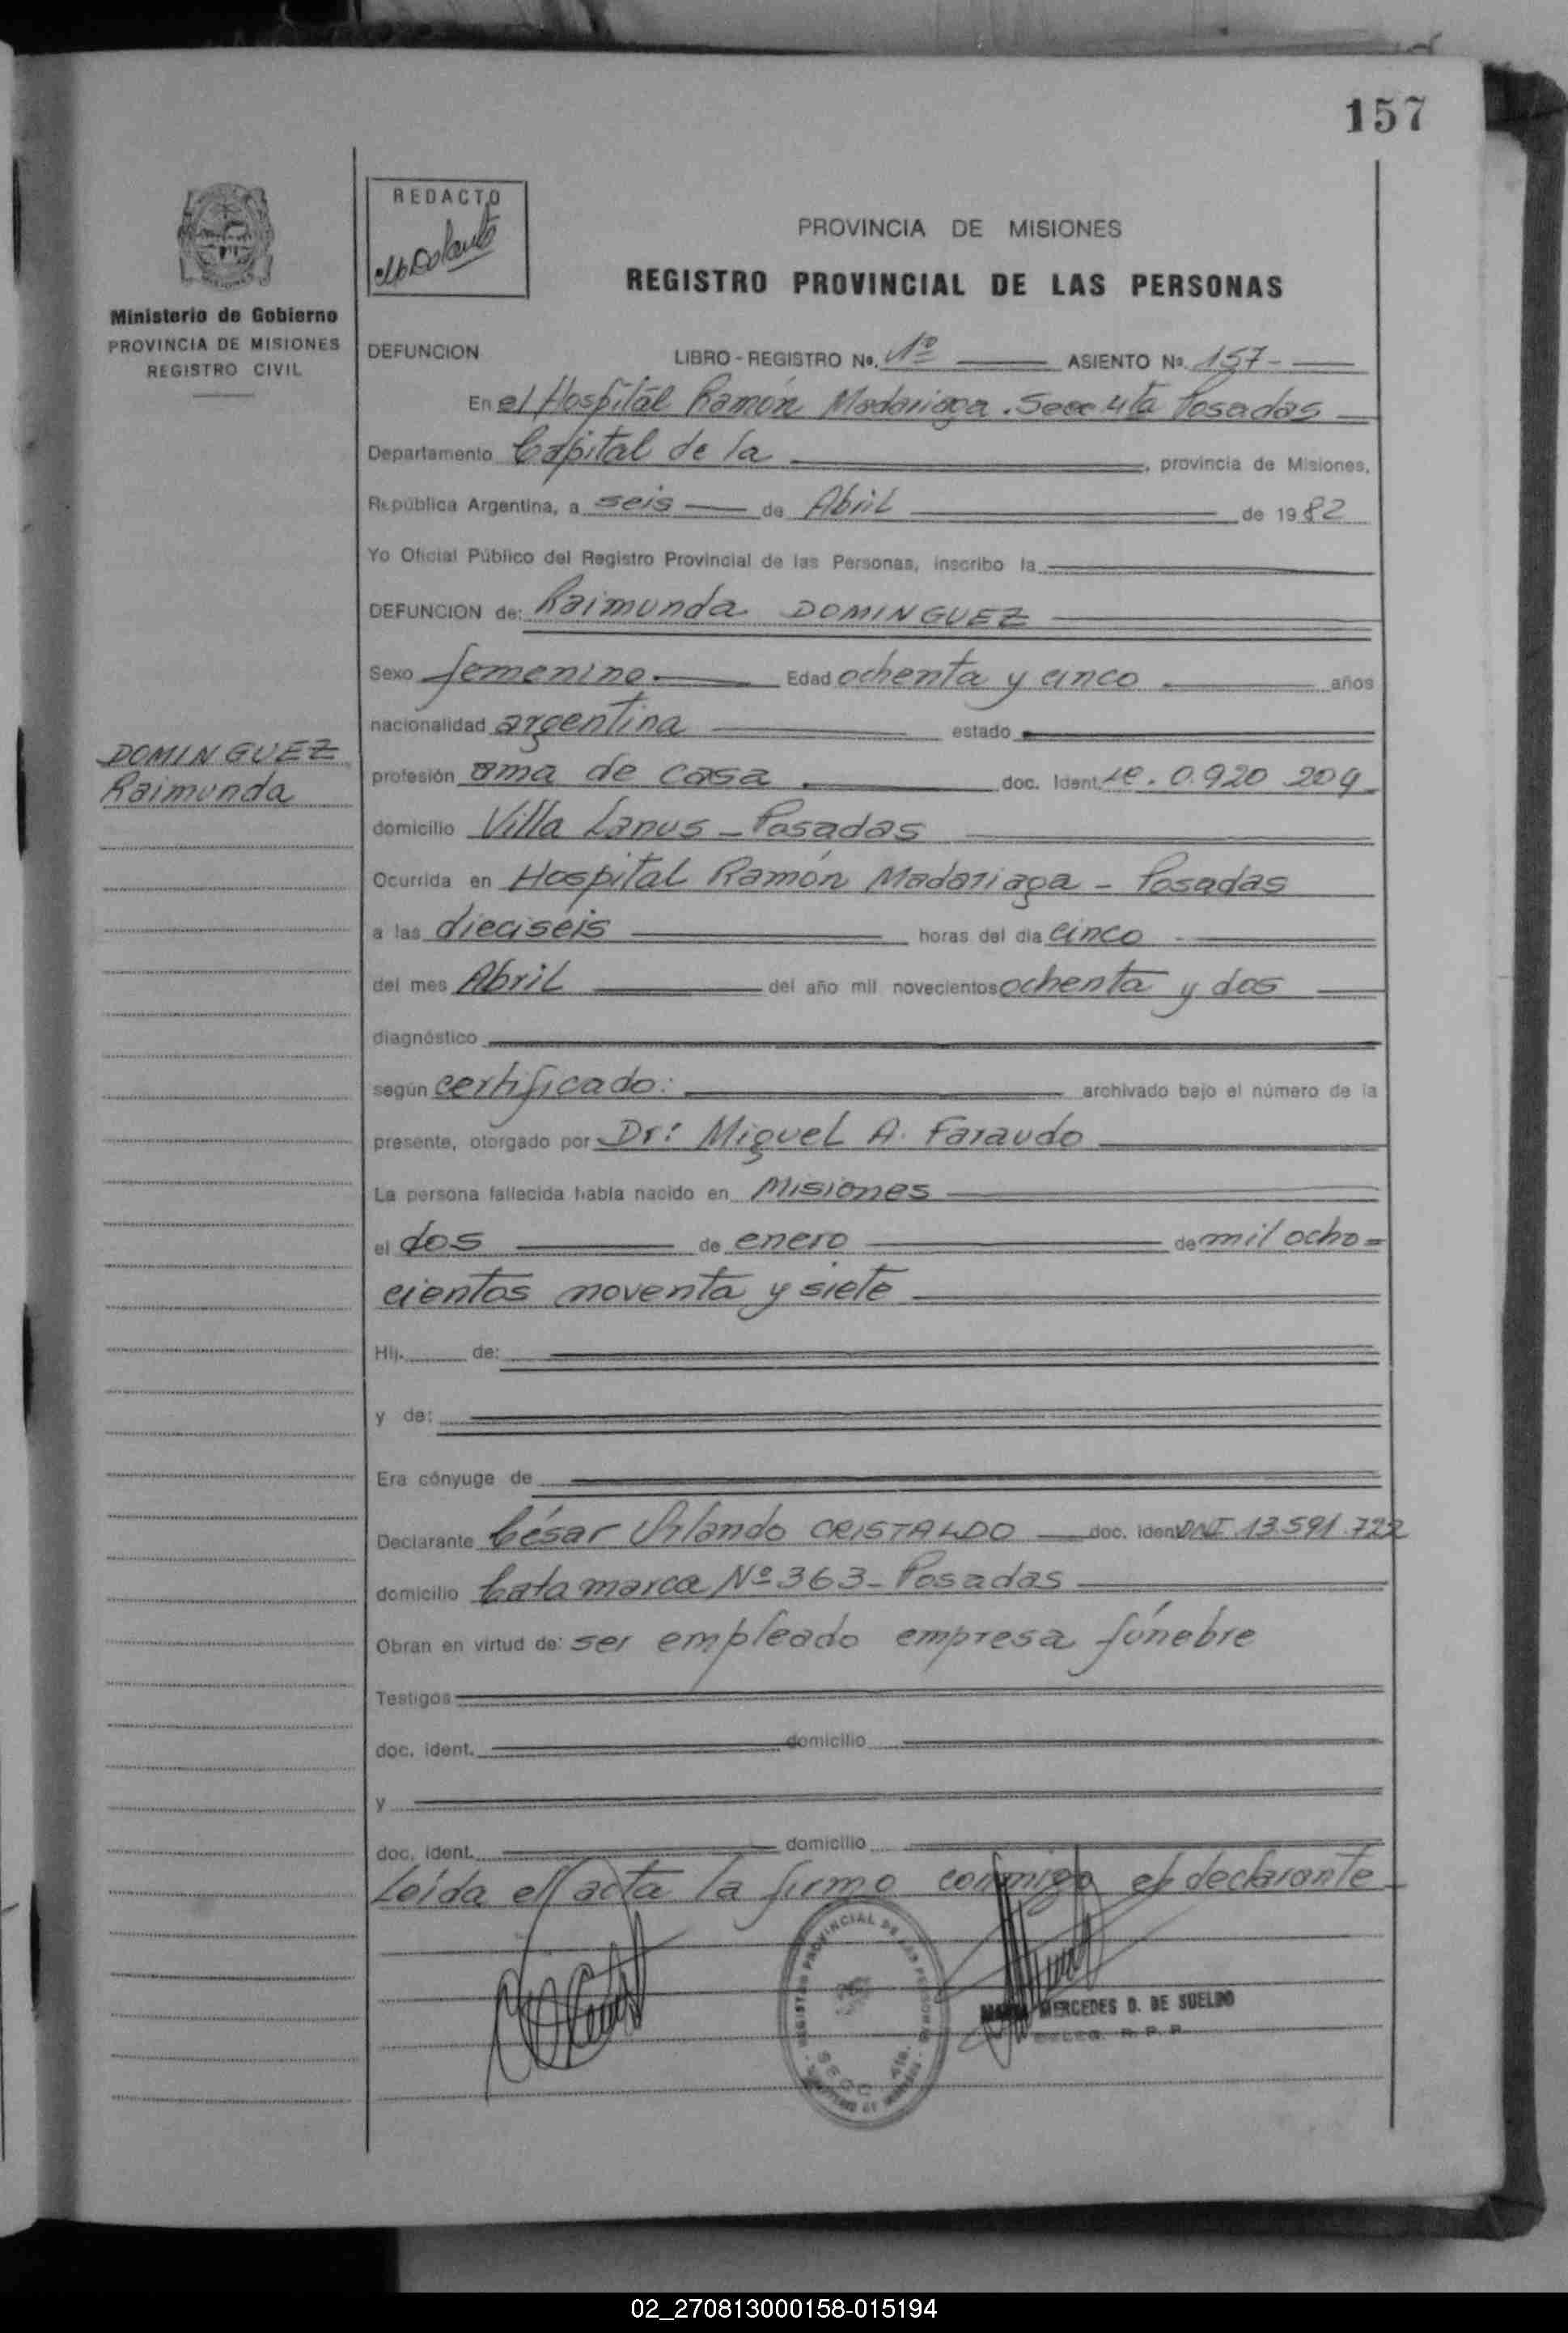 157
REDACTO
PROVINCIA DE MISIONES
REGISTRO PROVINCIAL DE LAS PERSONAS
Ministerio de Gobierno
PROVINCIA DE MISIONES
REGISTRO CIVIL
DEFUNCION LIBRO - REGISTRO Nº. 1º ASIENTO Nº. 157-
En el Hospital Ramón Madariaga. Secc 4ta Posadas
Departamento Capital de la , provincia de Misiones,
República Argentina, a seis de Abril de 1982
Yo Oficial Público del Registro Provincial de las Personas, inscribo la
DEFUNCION de: Raimunda DOMINGUEZ
Sexo femenino. Edad ochenta y cinco años
nacionalidad argentina estado
DOMINGUEZ
Raimunda
profesión ama de casa doc. Ident. le. 0.920 204
domicilio Villa Lanus - Posadas
Ocurrida en Hospital Ramón Madariaga - Posadas
a las dieciseis horas del día cinco
del mes Abril del año mil novecientos ochenta y dos
diagnóstico
según certificado: archivado bajo el número de la
presente, otorgado por Dr: Miguel A. Faraudo
La persona fallecida había nacido en Misiones
el dos de enero de mil ocho=
cientos noventa y siete
Hij. de:
y de:
Era cónyuge de
Declarante César Orlando CRISTALDO doc. iden DNI 13.591.722
domicilio Catamarca Nº 363- Posadas
Obran en virtud de: ser empleado empresa fúnebre
Testigos
doc. ident. domicilio
y
doc. ident. domicilio
Leída el acta la firmo conmigo el declarante
REGISTRO PROVINCIAL DE LAS PERSONAS
SECC 4ta.
MERCEDES D. DE SUELDO
DELEG. R. P. P.
02_270813000158-015194